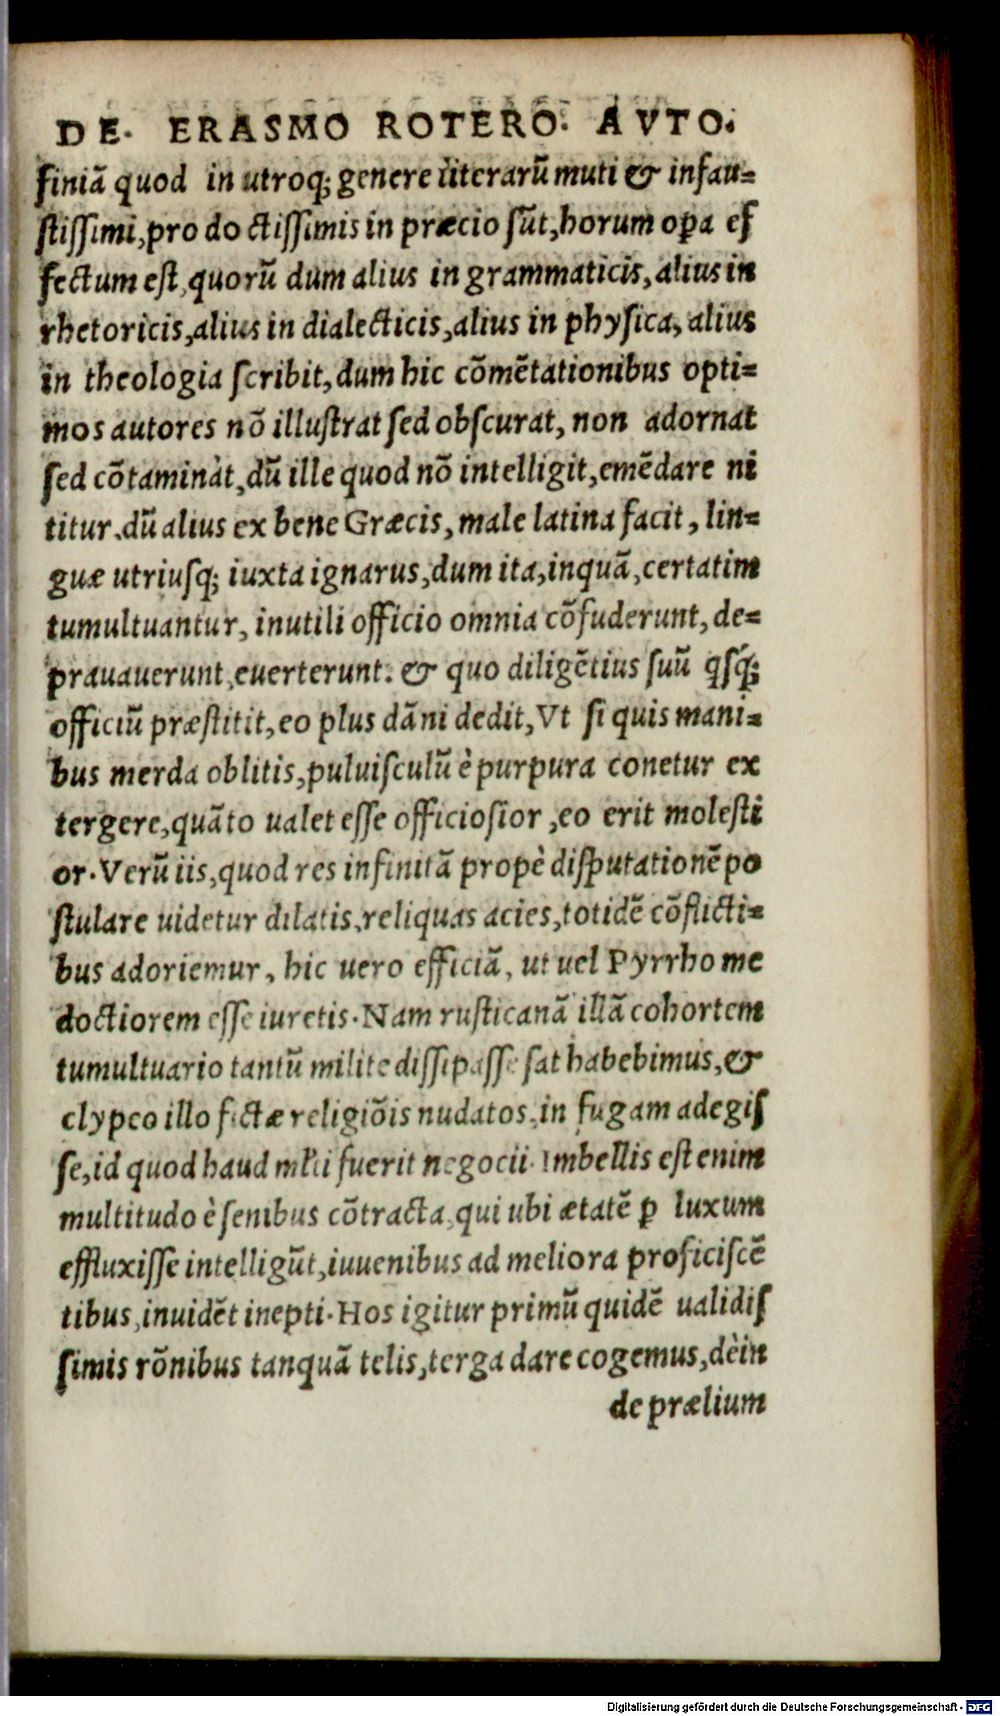 DE. ERASMO ROTERO. AVTO.
ſiniã quod in utroq; genere literarũ muti & infau=
ſtiſſimi, pro do ctiſſimis in præcio ſũt, horum oꝑa ef
fectum eſt, quorũ dum alius in grammaticis, alius in
rhetoricis, alius in dialecticis, alius in phyſica, alius
in theologia ſcribit, dum hic cõmẽtationibus opti=
mos autores nõ illuſtrat ſed obſcurat, non adornat
ſed cõtaminàt, dũ ille quod nõ intelligit, emẽdare ni
titur. dũ alius ex bene Græcis, male latina facit, lin=
guæ utriuſq; iuxta ignarus, dum ita, inquã, certatim
tumultuantur, inutili officio omnia cõfuderunt, de=
prauauerunt, euerterunt. & quo diligẽtius ſuũ qſq̃;
officiũ præſtitit, eo plus dãni dedit, Vt ſi quis mani=
bus merda oblitis, puluiſculũ è purpura conetur ex
tergere, quãto ualet eſſe officioſior, eo erit moleſti
or. Verũ iis, quod res infinitã propè diſputationẽ po
ſtulare uidetur dilatis, reliquas acies, totidẽ cõflicti=
bus adoriemur, hic uero efficiã, ut uel Pyrrho me
doctiorem eſſe iuretis. Nam ruſticanã illã cohortem
tumultuario tantũ milite diſſipaſſe ſat habebimus, &
clypeo illo fictæ religiõis nudatos, in fugam adegiſ
ſe, id quod haud mihi fuerit negocii. Imbellis eſt enim
multitudo è ſenibus cõtracta, qui ubi ætatẽ ꝑ luxum
effluxiſſe intelligũt, iuuenibus ad meliora proficiſcẽ
tibus, inuidẽt inepti. Hos igitur primũ quidẽ ualidiſ
ſimis rõnibus tanquã telis, terga dare cogemus, dèin
de prælium
Digitalisierung gefördert durch die Deutsche Forschungsgemeinschaft - DFG